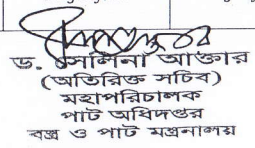 ড. সেলিনা আক্তার
(অতিরিক্ত সচিব)
মহাপরিচালক
পাট অধিদপ্তর
বস্ত্র ও পাট মন্ত্রণালয়